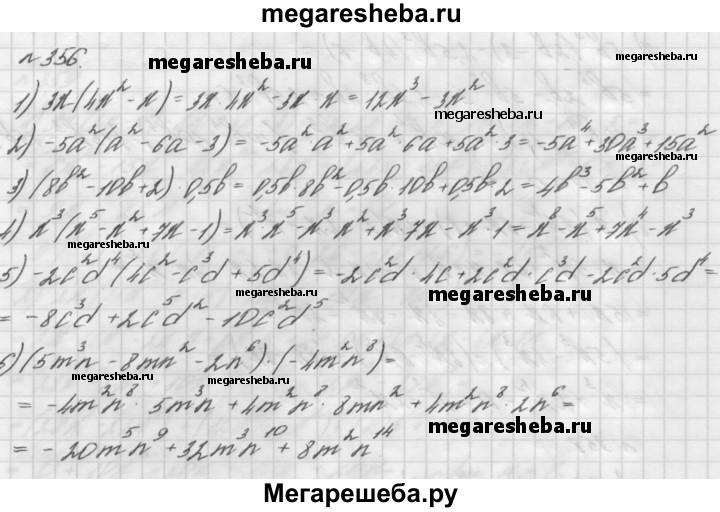 megaresheba.ru
n 356.
megaresheba.ru
megaresheba.ru
1) 3x(4x² - x) = 3x · 4x² - 3x · x = 12x³ - 3x²
2) -5a²(a² - 6a - 3) = -5a²a² + 5a² · 6a + 5a² · 3 = -5a⁴ + 30a³ + 15a²
megaresheba.ru
3) (8b² - 10b + 2) · 0,5b = 0,5b · 8b² - 0,5b · 10b + 0,5b · 2 = 4b³ - 5b² + b
4) x³(x⁵ - x² + 7x - 1) = x³ · x⁵ - x³ · x² + x³ · 7x - x³ · 1 = x⁸ - x⁵ + 7x⁴ - x³
megaresheba.ru
5) -2c²d⁴(4c² - c³d + 5d⁴) = -2c²d⁴ · 4c² + 2c²d⁴ · c³d - 2c²d⁴ · 5d⁴ =
megaresheba.ru
megaresheba.ru
= -8c³d + 2c⁵d² - 10c²d⁵
6) (5m³n - 8mn² - 2n⁶) · (-4m²n⁸) =
megaresheba.ru
megaresheba.ru
= -4m²n⁸ · 5m³n + 4m²n⁸ · 8mn² + 4m²n⁸ · 2n⁶ =
megaresheba.ru
= -20m⁵n⁹ + 32m³n¹⁰ + 8m²n¹⁴
Мегарешеба.ру